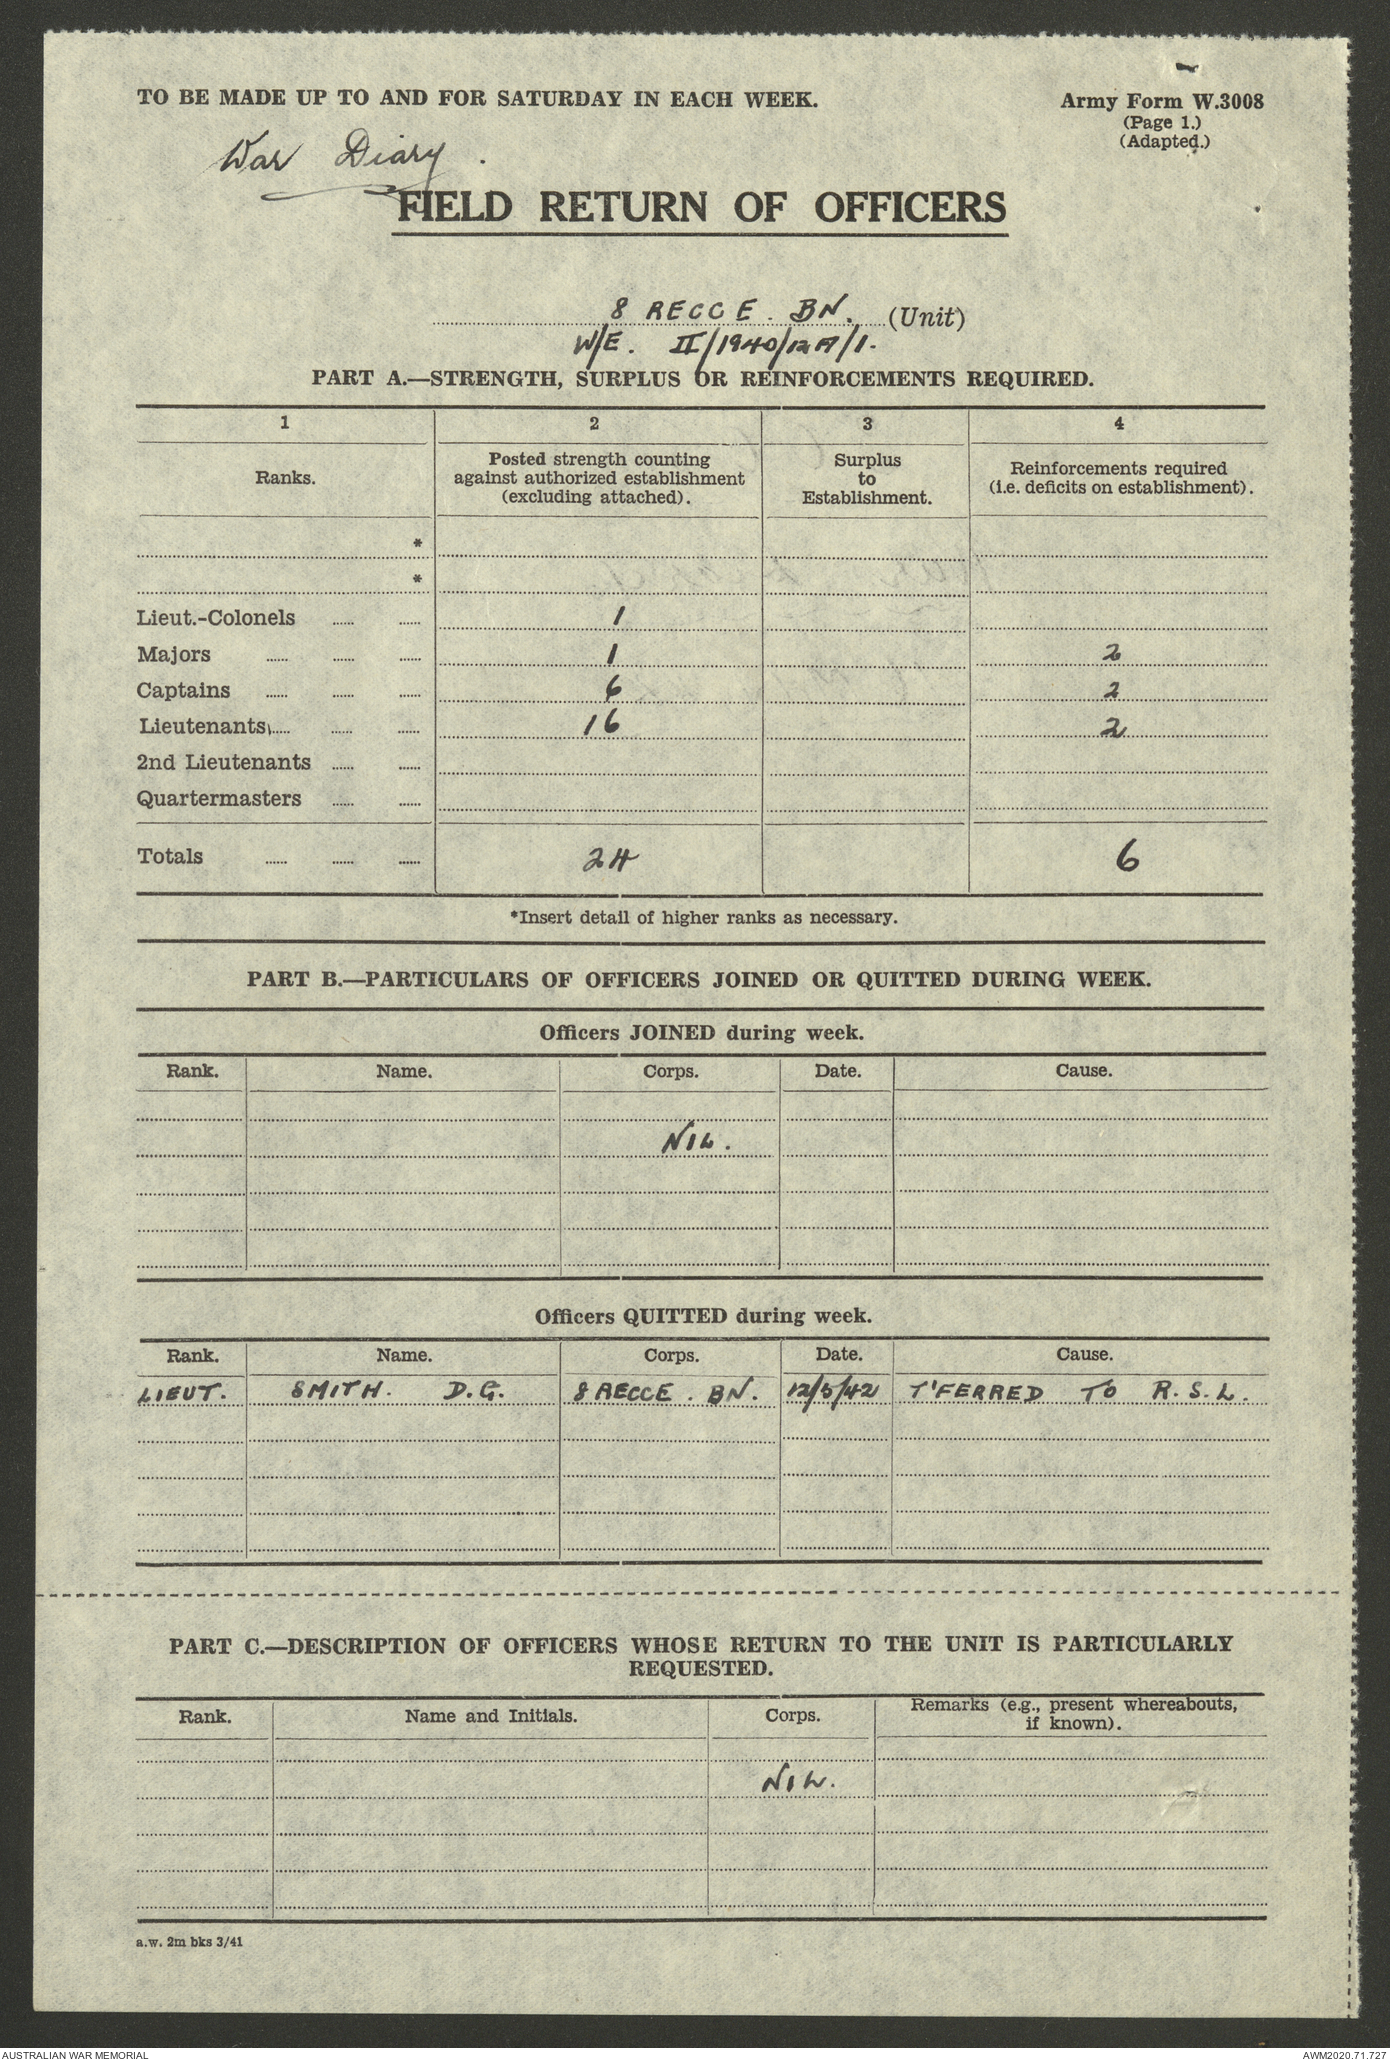 TO BE MADE UP TO AND FOR SATURDAY IN EACH WEEK.
Army Form W.3008
(Page 1.)
(Adapted.)
War Diary.
FIELD RETURN OF OFFICERS
8 RECCE. BN. (Unit)
W/E. II/1940/12A/1.
PART A.—STRENGTH, SURPLUS OR REINFORCEMENTS REQUIRED.
1 2 3 4
Ranks. Posted strength counting against authorized establishment (excluding attached). Surplus to Establishment. Reinforcements required (i.e. deficits on establishment).
*
*
Lieut.-Colonels ...... ...... 1
Majors ...... ...... ...... 1 2
Captains ...... ...... ...... 6 2
Lieutenants ...... ...... ...... 16 2
2nd Lieutenants ...... ......
Quartermasters ...... ......
Totals ...... ...... ...... 24 6
*Insert detail of higher ranks as necessary.
PART B.—PARTICULARS OF OFFICERS JOINED OR QUITTED DURING WEEK.
Officers JOINED during week.
Rank. Name. Corps. Date. Cause.
NIL.
Officers QUITTED during week.
Rank. Name. Corps. Date. Cause.
LIEUT. SMITH. D.G. 8 RECCE. BN. 12/5/42 T'FERRED TO R.S.L.
PART C.—DESCRIPTION OF OFFICERS WHOSE RETURN TO THE UNIT IS PARTICULARLY
REQUESTED.
Rank. Name and Initials. Corps. Remarks (e.g., present whereabouts, if known).
NIL.
a.w. 2m bks 3/41
AUSTRALIAN WAR MEMORIAL
AWM2020.71.727